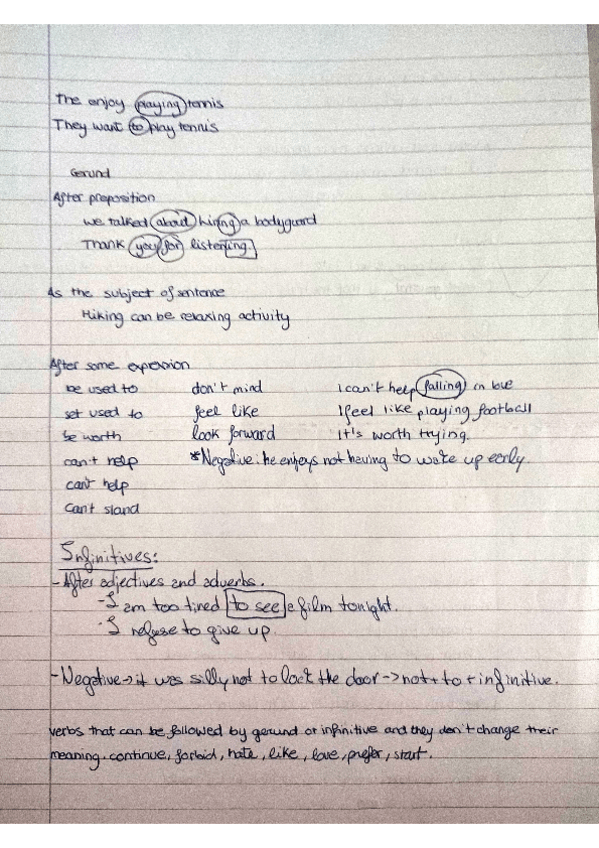 The enjoy playing tennis
They want to play tennis
Gerund
After preposition
We talked about hiring a bodyguard
Thank you for listening.
As the subject of sentence
Hiking can be relaxing activity
After some expression
be used to don't mind I can't help falling in love
set used to feel like I feel like playing football
be worth look forward It's worth trying.
can't help *Negative: he enjoys not having to wake up early.
can't help
can't stand
Infinitives:
- After adjectives and adverbs.
- I am too tired to see a film tonight.
· I refuse to give up.
- Negative → it was silly not to lock the door → not + to + infinitive.
verbs that can be followed by gerund or infinitive and they don't change their
meaning. continue, forbid, hate, like, love, prefer, start.